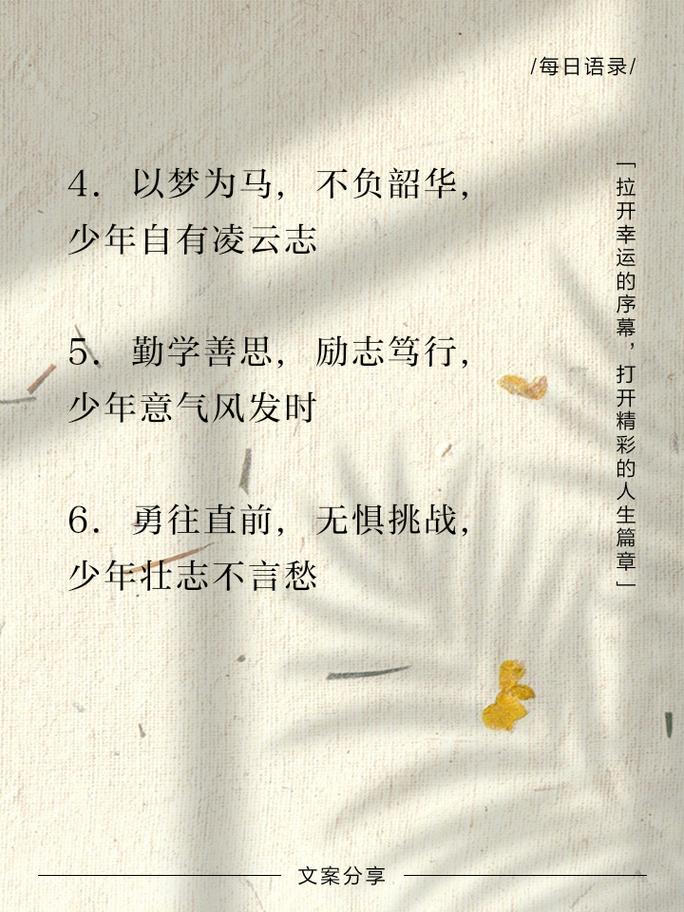 /每日语录/
4. 以梦为马，不负韶华，
少年自有凌云志
5. 勤学善思，励志笃行，
少年意气风发时
6. 勇往直前，无惧挑战，
少年壮志不言愁
「拉开幸运的序幕，打开精彩的人生篇章」
文案分享